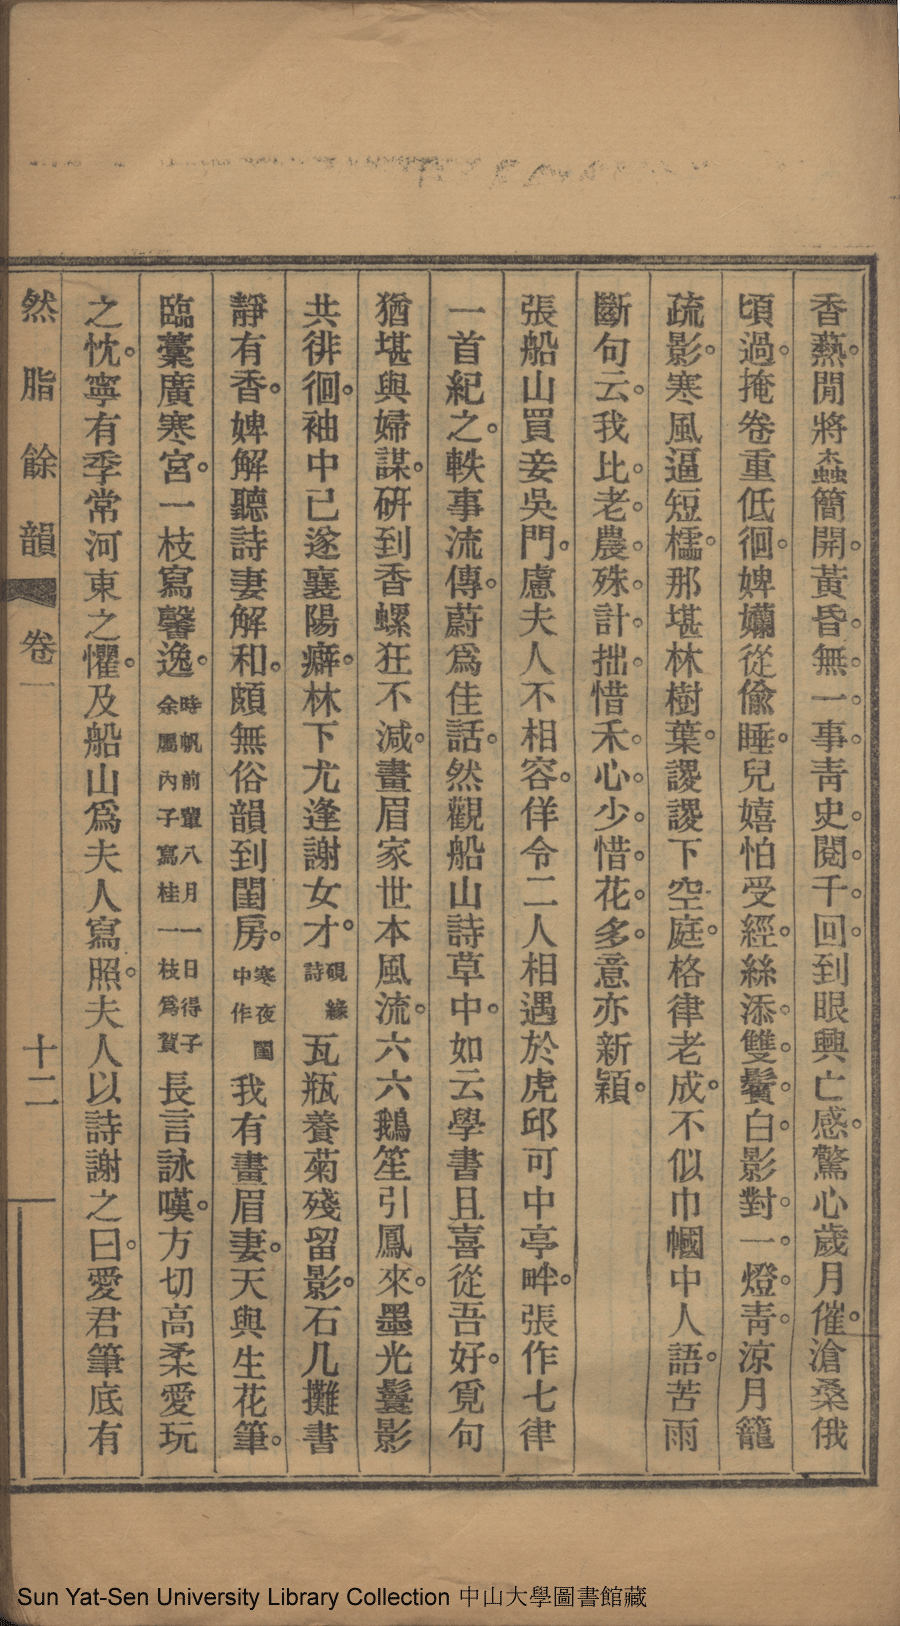 香爇。閒將蟲簡開。黃昏。無。一。事。靑史。閱。千。回。到眼興亡感。驚心歲月催。滄桑俄
頃過。掩卷重低徊。婢孏從偸睡。兒嬉怕受經。絲添。雙。鬢。白。影對。一。燈。靑。涼月籠
疏影。寒風逼短檽。那堪林樹葉。謖謖下空庭。格律老成。不似巾幗中人語。苦雨
斷句云。我比。老。農。殊。計。拙。惜禾。心。少。惜。花。多。意亦新穎。
張船山買妾吳門。慮夫人不相容。佯令二人相遇於虎邱可中亭畔。張作七律
一首紀之。軼事流傳。蔚爲佳話。然觀船山詩草中。如云學書且喜從吾好。覓句
猶堪與婦謀。硏到香螺狂不減。畫眉家世本風流。六六鵝笙引鳳來。墨光鬟影
共徘徊。袖中已遂襄陽癖。林下尤逢謝女才。硯緣詩 瓦瓶養菊殘留影。石几攤書
靜有香。婢解聽詩妻解和。頗無俗韻到閨房。寒夜閨中作 我有畫眉妻。天與生花筆。
臨藁廣寒宮。一枝寫馨逸。時帆前輩八月一日得子余屬內子寫桂一枝爲賀 長言詠嘆。方切高柔愛玩
之忱。寧有季常河東之懼。及船山爲夫人寫照。夫人以詩謝之曰。愛君筆底有
然脂餘韻 卷一 十二
Sun Yat-Sen University Library Collection 中山大學圖書館藏